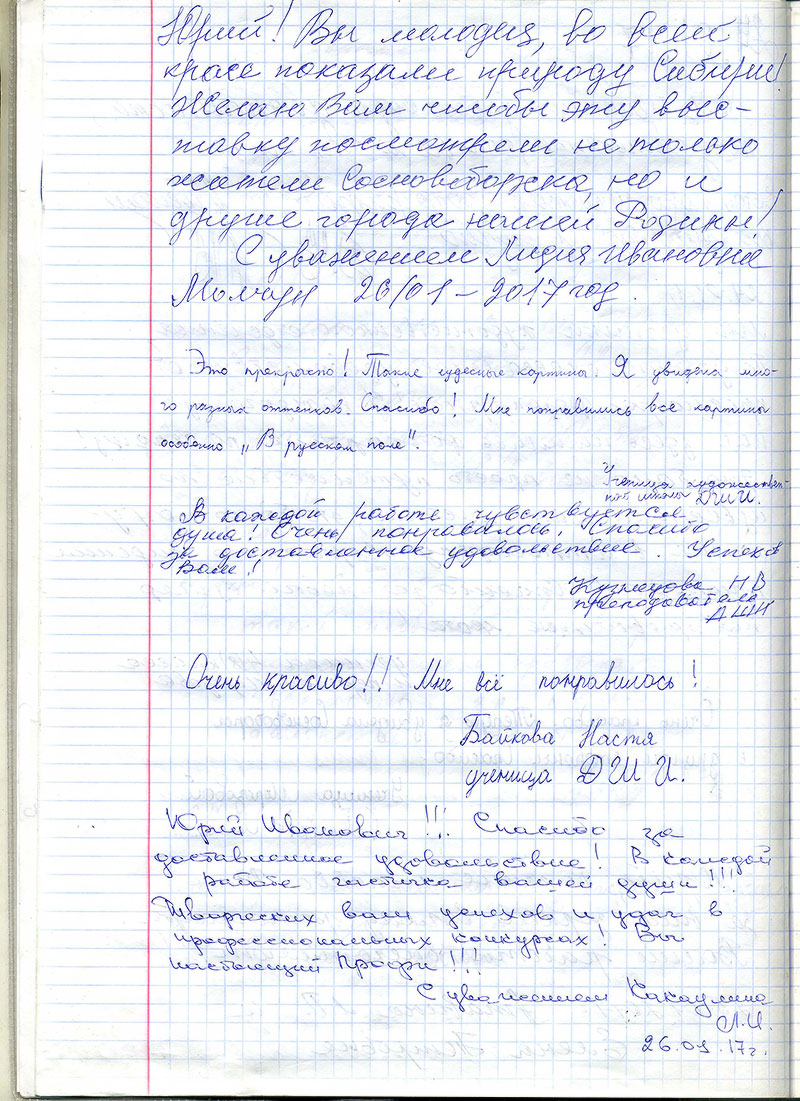 Юрий! Вы молодец, во всей
красе показали природу Сибири!
Желаю Вам чтобы эту выс-
тавку посмотрели не только
жители Сосновоборска, но и
другие города нашей Родины!
С уважением Лидия Ивановна
26/01 – 2017 год.
Это прекрасно! Такие чудесные картины. Я увидела мно-
го разных оттенков. Спасибо! Мне понравились все картины
особенно „В русском поле".
Ученица художествен-
ной школы ДШИ.
В каждой работе чувствуется
душа! Очень понравилось. Спасибо
за доставленное удовольствие. Успехов
Вам!
Кузнецова НВ
преподаватель
ДШИ
Очень красиво!! Мне всё понравилось!
Байкова Настя
ученица ДШИ.
Юрий Иванович!!! Спасибо за
доставленное удовольствие! В каждой
работе частичка вашей души!!!
Творческих вам успехов и удач в
профессиональных конкурсах! Вы
настоящий Профи!!!
С уважением Какаулина
Л.И.
26.01.17г.